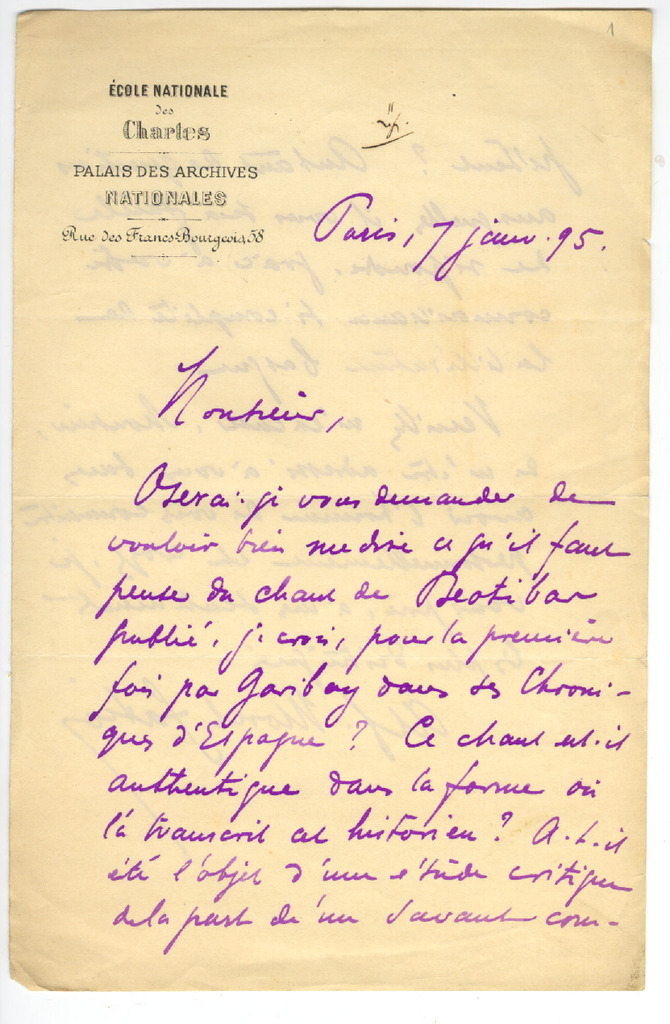 1
ÉCOLE NATIONALE
des
Chartes
PALAIS DES ARCHIVES
NATIONALES
Rue des Francs-Bourgeois, 58
Paris, 7 janv. 95.
Monsieur,
Oserai-je vous demander de
vouloir bien me dire ce qu'il faut
penser du chant de Beotibar
publié, je crois, pour la première
fois par Garibay dans ses Chroni-
ques d'Espagne ? Ce chant est-il
authentique dans la forme où
l'a transcrit cet historien ? A-t-il
été l'objet d'une étude critique
de la part de un savant com-